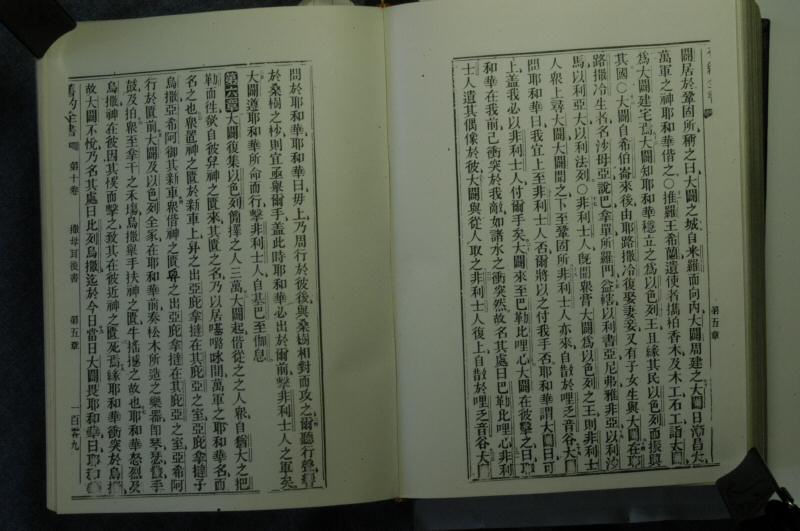 闢居於鞏固所稱之曰大闢之城自米羅而向內大闢周建之大闢日漸昌大
萬軍之神耶和華偕之○推羅王希蘭遣使者攜柏香木及木工石工詣大闢
爲大闢建宅焉大闢知耶和華穩立之爲以色列王且緣其民以色列而振興
其國○大闢自希伯崙來後由耶路撒冷復娶妻妾又有子女生與大闢在耶
路撒冷生名名沙母亞說巴拿單所羅門益轄以利書亞尼弗雅非亞以利沙
馬以利亞大以利法列○非利士人旣聞衆膏大闢爲以色列之王則非利士
人衆上尋大闢大闢聞之下至鞏固所非利士人亦來自散於哩乏音谷大闢
問耶和華曰我宜上至非利士人否爾將以之付我手否耶和華謂大闢曰可
上蓋我必以非利士人付爾手矣大闢來至巴勒比哩心大闢在彼擊之曰耶
和華在我前已衝突於我敵如諸水之衝突然故名其處曰巴勒比哩心非利
士人遺其偶像於彼大闢與從人取之非利士人復上自散於哩乏音谷大闢
第五章
問於耶和華耶和華曰毋上乃周行於彼後與桑樹相對而攻之爾聽行聲
於桑樹之杪則宜亟舉爾手蓋此時耶和華必出於爾前擊非利士人之軍矣
大闢遵耶和華所命而行擊非利士人自基巴至伽息
第六章大闢復集以色列簡擇之人三萬大闢起偕從之之人衆自猶大之把
勒而往欲自彼舁神之匱來其匱之名乃以居𠼻𠺕咏間萬軍之耶和華名而
名之也衆置神之匱於新車上舁之出亞庇拿撻在其庇亞之室亞庇拿撻子
烏撒亞希阿御其新車衆偕神之匱舁之出亞庇拿撻在其庇亞之室亞希阿
行於匱前大闢及以色列全家在耶和華前奏松木所造之樂器卽琴瑟
鼓及拍衆至拿干之禾塲烏撒舉手扶神之匱牛搖撼之故也耶和華怒烈及
烏撒神在彼因其悞而擊之致其在彼近神之匱死焉緣耶和華衝突於烏撒
故大闢不悅乃名其處曰比列烏撒迄於今日當日大闢畏耶和華曰耶和
舊約全書
第十卷
撒母耳後書
第五章
一百零九